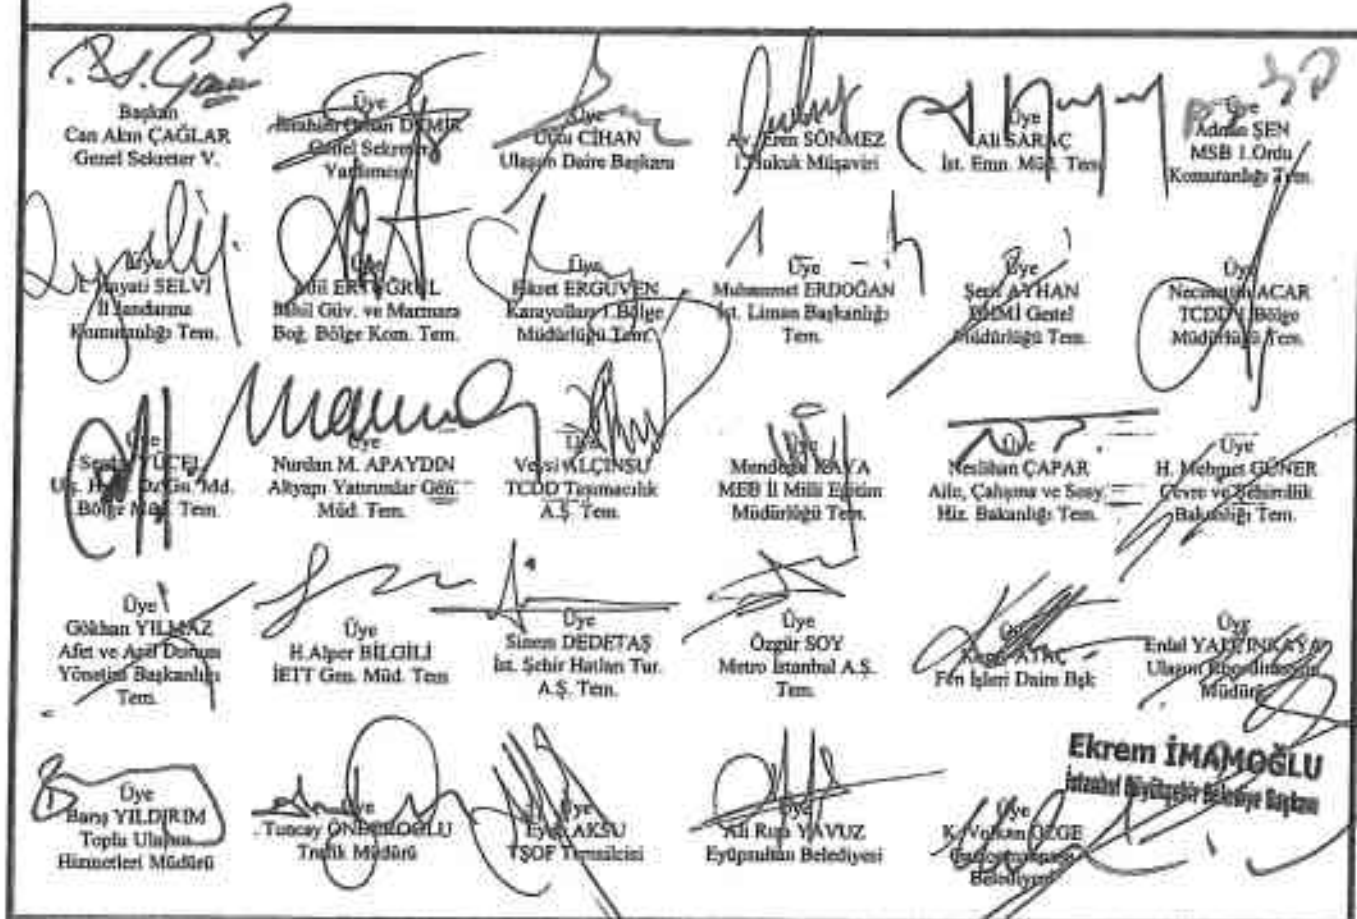 Başkan
Can Akın ÇAĞLAR
Genel Sekreter V.
Üye
İbrahim Orhan DEMİR
Genel Sekreter
Yardımcısı
Üye
Utku CİHAN
Ulaşım Daire Başkanı
Üye
Av. Eren SÖNMEZ
1.Hukuk Müşaviri
Üye
Ali SARAÇ
İst. Emn. Müd. Tem.
Üye
Adnan ŞEN
MSB 1.Ordu
Komutanlığı Tem.
Üye
Hayati SELVİ
İl Jandarma
Komutanlığı Tem.
Üye
ERTUĞRUL
Sahil Güv. ve Marmara
Boğ. Bölge Kom. Tem.
Üye
Fikret ERGÜVEN
Karayolları 1.Bölge
Müdürlüğü Tem.
Üye
Muhammet ERDOĞAN
İst. Liman Başkanlığı
Tem.
Üye
AYHAN
DHMİ Genel
Müdürlüğü Tem.
Üye
Necmettin ACAR
TCDD 1.Bölge
Müdürlüğü Tem.
Üye
YÜCEL
Bölge Müd. Tem.
Üye
Nurdan M. APAYDIN
Altyapı Yatırımlar Gen.
Müd. Tem.
Üye
Veysi ALÇINSU
TCDD Taşımacılık
A.Ş. Tem.
Üye
KAYA
MEB İl Milli Eğitim
Müdürlüğü Tem.
Üye
Neslihan ÇAPAR
Aile, Çalışma ve Sosy.
Hiz. Bakanlığı Tem.
Üye
H. Mehmet GÜNER
Çevre ve Şehircilik
Bakanlığı Tem.
Üye
Gökhan YILMAZ
Afet ve Acil Durum
Yönetim Başkanlığı
Tem.
Üye
H.Alper BİLGİLİ
İETT Gen. Müd. Tem
Üye
Sinem DEDETAŞ
İst. Şehir Hatları Tur.
A.Ş. Tem.
Üye
Özgür SOY
Metro İstanbul A.Ş.
Tem.
Üye
Fen İşleri Daire Bşk
Üye
YALÇINKAYA
Ulaşım Koordinasyon
Müdürü
Üye
Barış YILDIRIM
Toplu Ulaşım
Hizmetleri Müdürü
Üye
Tuncay ÖNDEROĞLU
Trafik Müdürü
Üye
Eyüp AKSU
TŞOF Temsilcisi
Üye
Ali Rıza YAVUZ
Eyüpsultan Belediyesi
Üye
K. Volkan ÖZGE
Gaziosmanpaşa
Belediyesi
Ekrem İMAMOĞLU
İstanbul Büyükşehir Belediye Başkanı